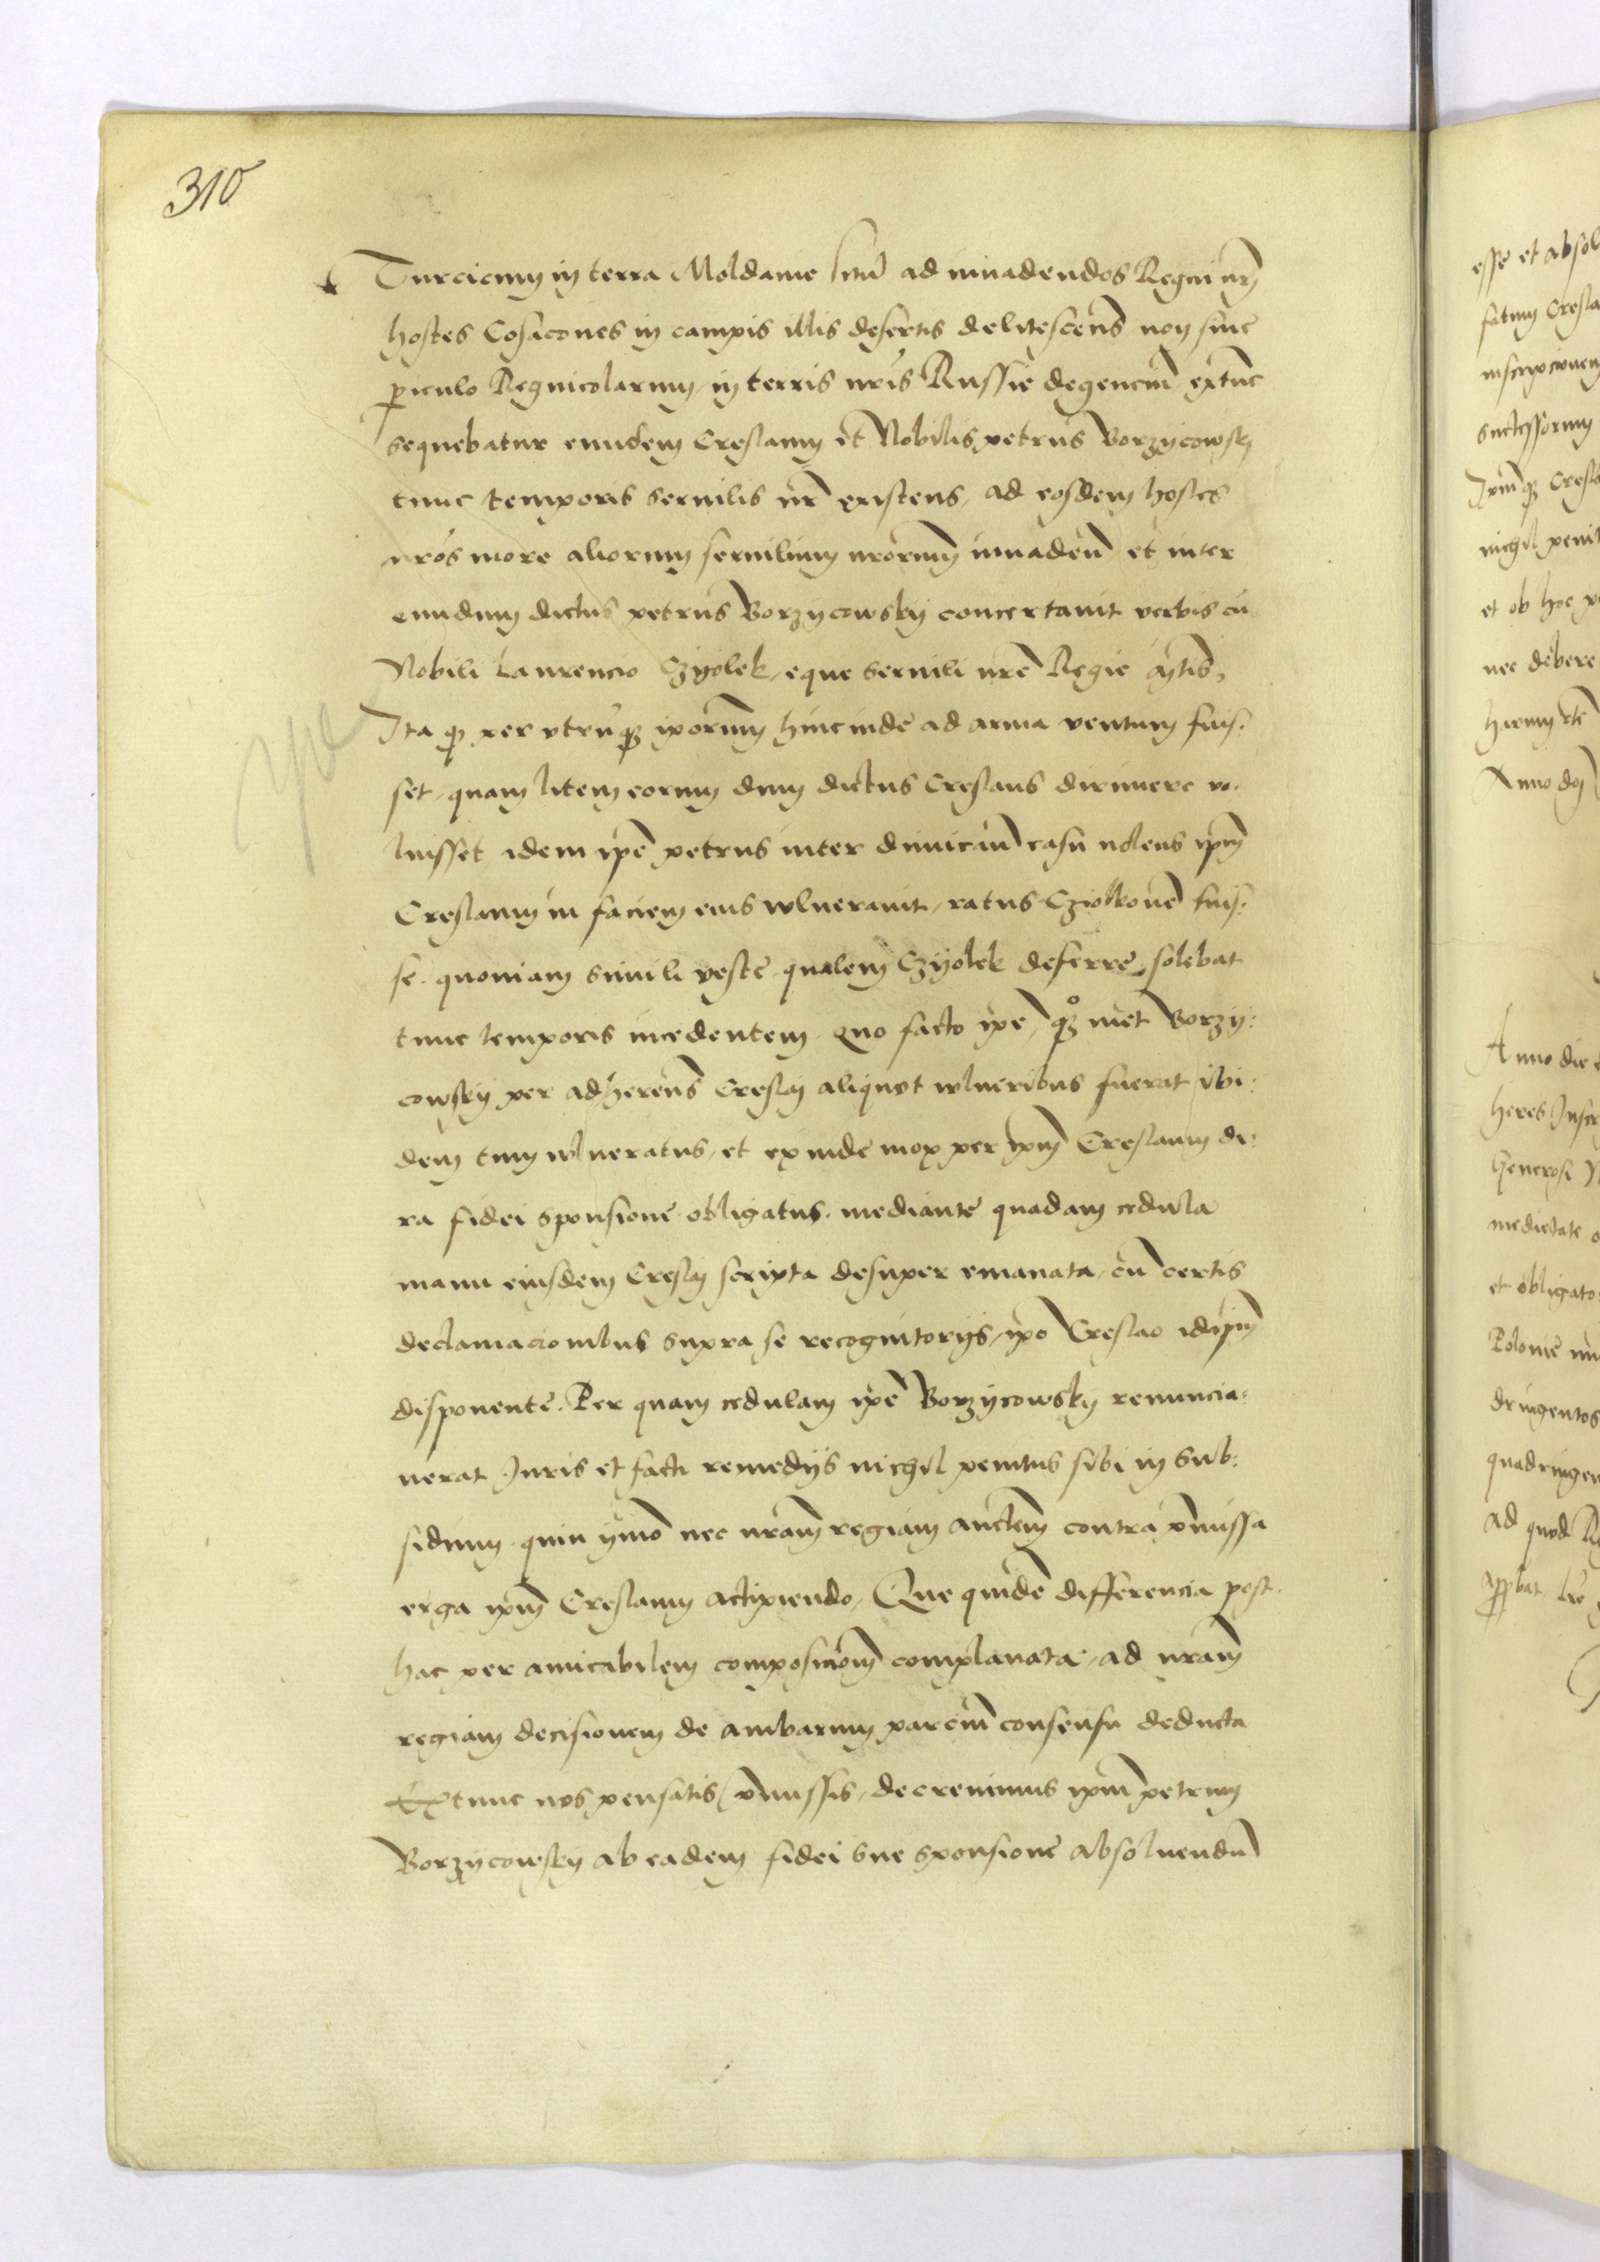 310
Turcicum in terra Moldavie situ ad invadendos Regni nri
hostes Cosacones in campis illis desertis delitescens non sine
piculo Regnicolarum in terris nris Russie degencium extunc
sequebatur eundem Creslaum et Nobilis petrus Borzycowsky
tunc temporis servilis nr existens, ad eosdem hostes
nros more aliorum servilium nrorum invaden et inter
eundum dictus petrus Borzycowskij concertavit verbis cu
Nobili Laurencio Czyolek, eque servili nre Regie Mtis,
Ita q per utruq iporum hincinde ad arma ventum fuis:
set, quam litem eorum dum dictus Creslaus dirimere vo:
luisset idem ipe petrus inter dimican casu nolens ipm
Creslaum in faciem eius vulneravit, ratus Cziolkone fuis:
se, quoniam simili veste qualem Czyolek deferre solebat
tunc temporis incedentem. Quo facto ipe, q met Borzy:
cowskij per adherens Creslai aliquot vulneribus fuerat ibi:
dem tum vulneratus, et exinde mox per ipm Creslaum de:
ra fidei sponsione obligatus, mediante quadam cedula
manu eiusdem Creslai scripta desuper emanata, cu certis
declamacionibus supra se recognitorijs, ipo Creslao idipm
disponente. Per quam cedulam ipe Borzycowsky renuncia:
verat Juris et facti remedijs nichil penitus sibi in sub:
sidium, quin ymo nec nram regiam auctem contra pmissa
erga ipm Creslaum accipiendo, Que quide differencia post
hac per amicabilem composicom complanata, ad nram
regiam decisionem de ambarum parcium consensu deducta
Extunc nos pensatis pmissis, decrevimus ipm petrum
Borzycowsky ab eadem fidei sue sponsione absolvendu